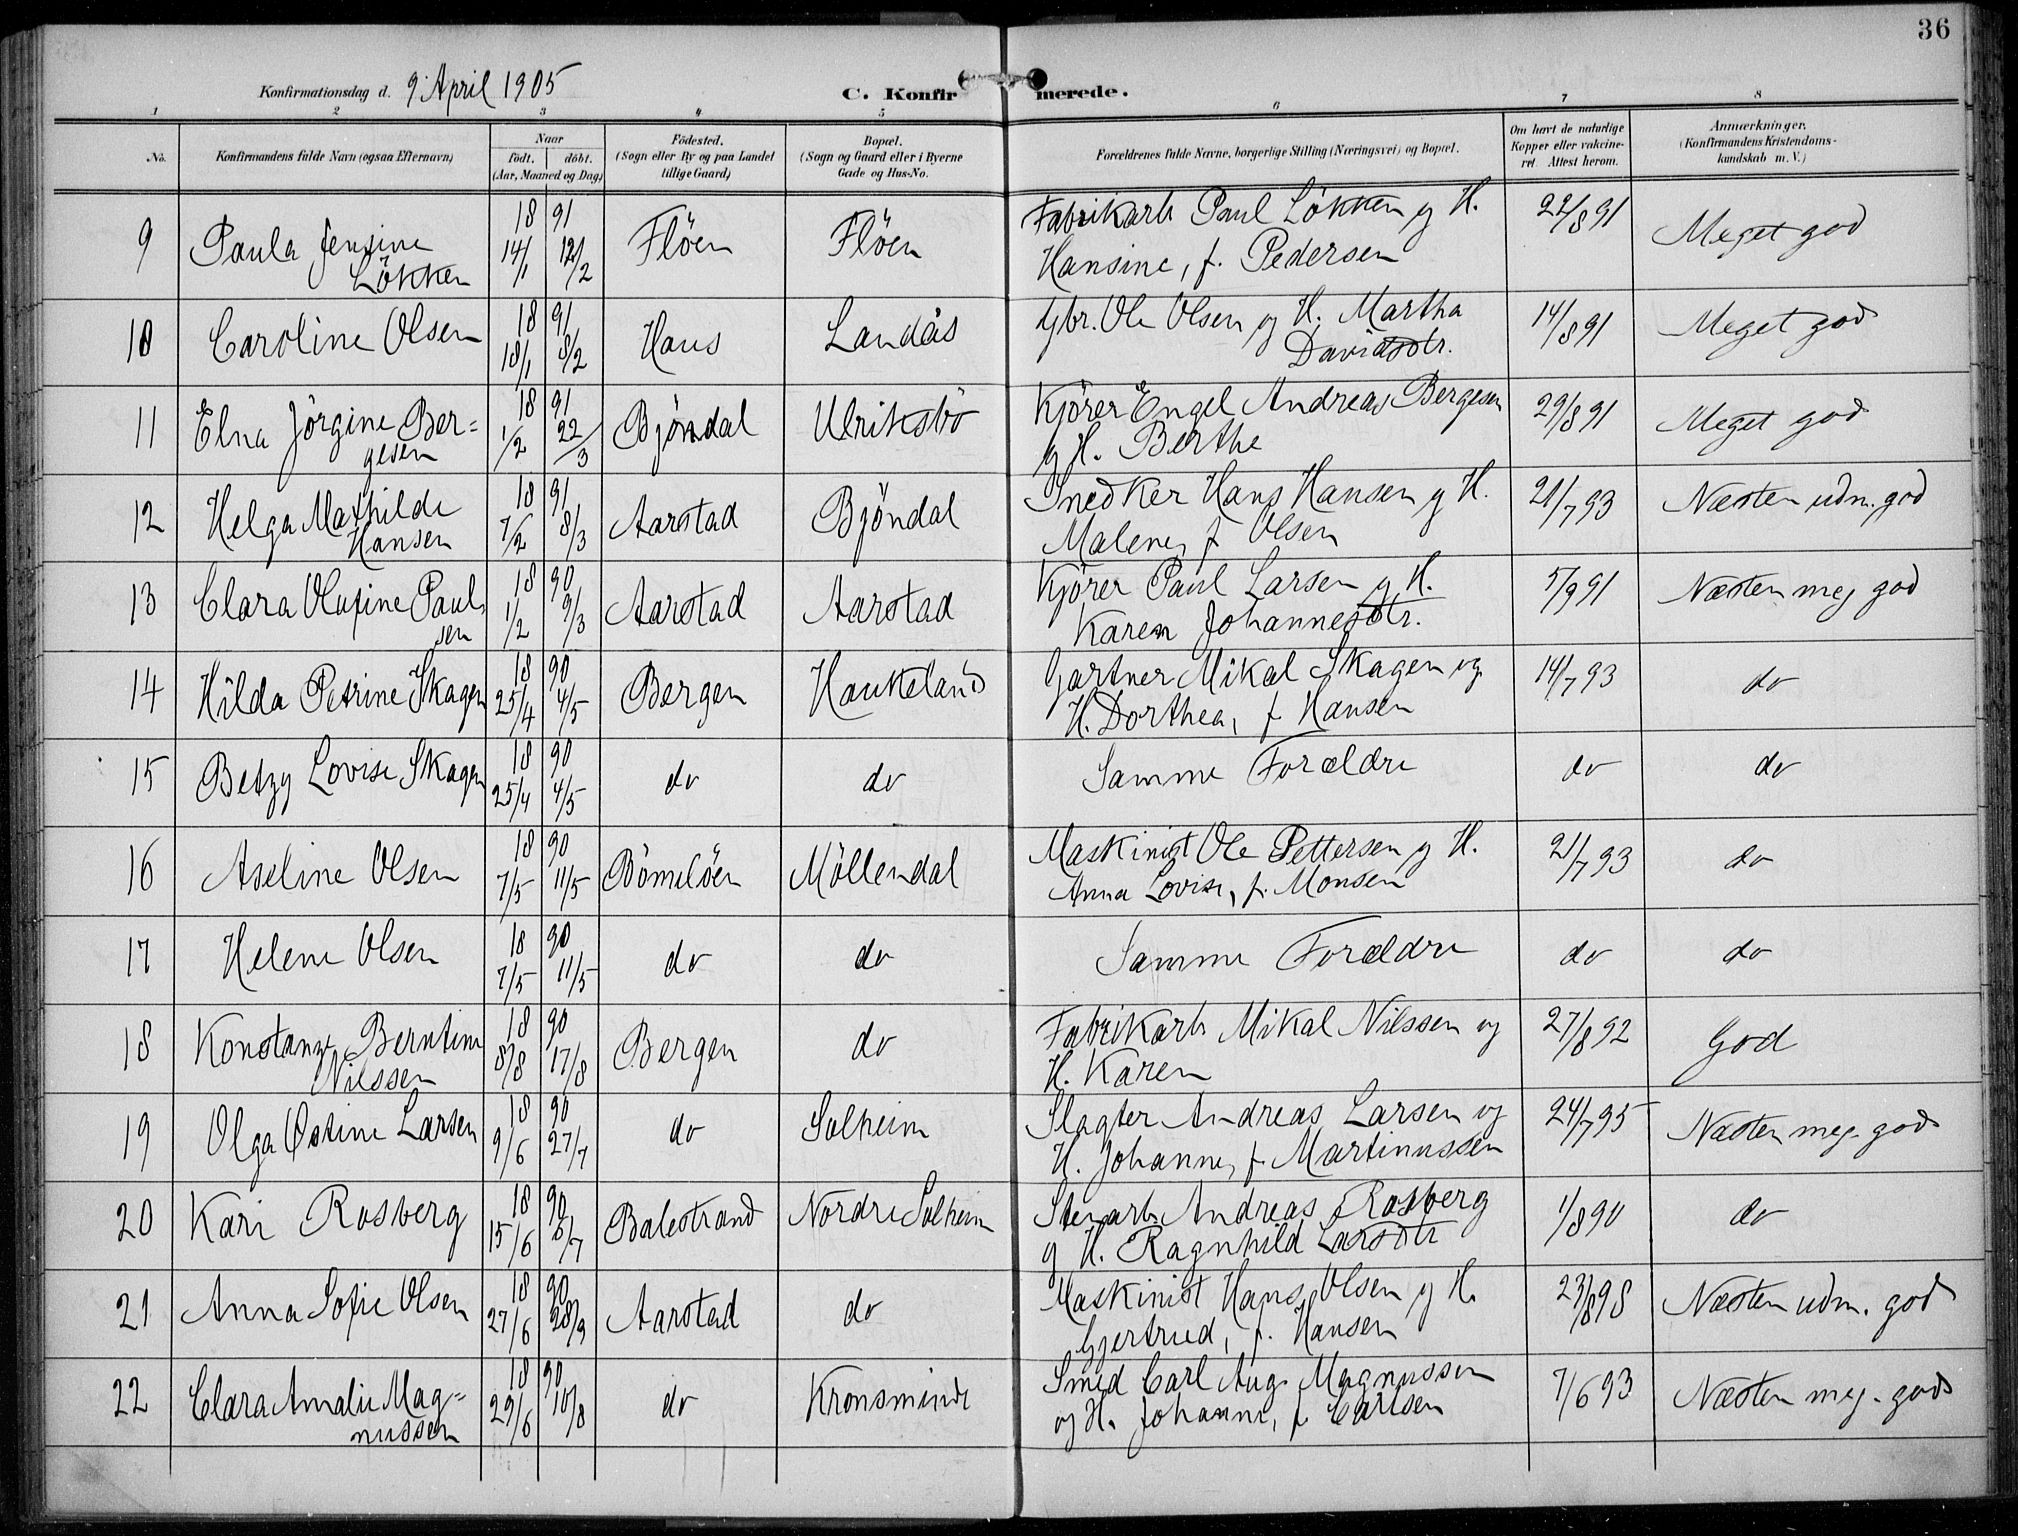 36
Konfirmationsdag d. 9. April 1905
C. Konfirmerede.
1 2 3 4 5 6 7 8
No. | Konfirmandens fulde Navn (ogsaa Efternavn) | Naar födt. döbt. (Aar, Maaned og Dag) | Födested. (Sogn eller By og paa Landet tillige Gaard) | Bopæl. (Sogn og Gaard eller i Byerne Gade og Hus-No. | Forældrenes fulde Navne, borgerlige Stilling (Næringsvei) og Bopæl. | Om havt de naturlige Kopper eller vakcineret. Attest herom. | Anmærkninger. (Konfirmandens Kristendomskundskab m. V.)
9 | Paula Jensine Lökken | 18 91 14/1 12/2 | Flöen | Flöen | Fabrikarb Paul Lökken og H. Hansine, f. Pedersen | 22/8 91 | Meget god
10 | Caroline Olsen | 18 91 18/1 8/2 | Haus | Landås | Gbr. Ole Olsen og H. Martha Davidsdtr. | 14/8 91 | Meget god
11 | Elna Jörgine Ber=gesen | 18 91 1/2 22/3 | Bjöndal | Ulriksbö | Kjörer Engel Andreas Bergesen og H. Berthe | 29/8 91 | Meget god
12 | Helga Mathilde Hansen | 18 91 7/2 8/3 | Aarstad | Bjöndal | Snedker Hans Hansen og H. Malene, f Olsen | 21/7 93 | Næsten udm. god
13 | Clara Olufine Paulsen | 18 90 1/2 9/3 | Aarstad | Aarstad | Kjörer Paul Larsen og H. Karen Johannesdtr. | 5/9 91 | Næsten meg god
14 | Hilda Petrine Skagen | 18 90 25/4 4/5 | Bergen | Haukeland | Gartner Mikal Skagen og H. Dorthea, f Hansen | 14/7 93 | do
15 | Betzy Lovise Skagen | 18 90 25/4 4/5 | do | do | Samme Forældre | do | do
16 | Aseline Olsen | 18 90 7/5 11/5 | Bömelöen | Möllendal | Maskinist Ole Pettersen og H. Anna Lovise, f. Monsen | 21/7 93 | do
17 | Helene Olsen | 18 90 7/5 11/5 | do | do | Samme Forældre | do | do
18 | Konstanze Berntine Nilssen | 18 90 8/8 17/8 | Bergen | do | Fabrikarb Mikal Nilssen og H. Karen | 27/8 92 | God
19 | Olga Østine Larsen | 18 90 9/6 27/7 | do | Solheim | Slagter Andreas Larsen og H. Johanne, f Martinussen | 24/7 95 | Næsten meg. god
20 | Kari Rosberg | 18 90 15/6 6/7 | Balestrand | Nordre Solheim | Stenarb. Andreas Rosberg og H. Ragnhild Larsdtr | 1/8 90 | do
21 | Anna Sofie Olsen | 18 90 27/6 28/9 | Aarstad | do | Maskinist Hans Olsen og H. Gjertrud, f. Hansen | 23/8 98 | Næsten udm. god
22 | Clara Amalie Mag=nussen | 18 90 29/6 10/8 | do | Kronsminde | Smed Carl Aug. Magnussen og H. Johanne, f Carlsen | 7/6 93 | Næsten meg. god